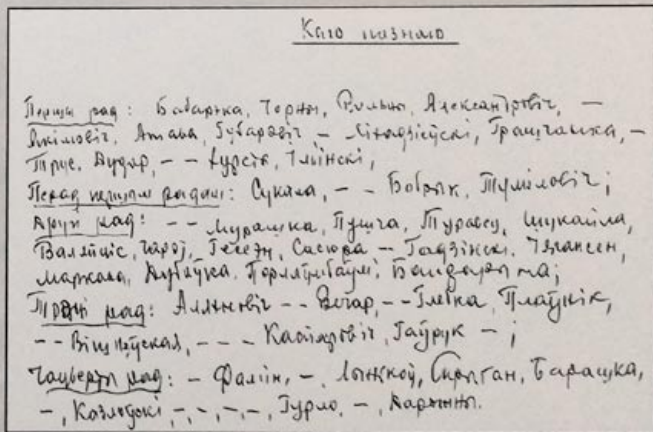 Каго пазнаю
Першы рад: Бабарэка, Чорны, Вольны, Александровіч, —
Якімовіч, Атава, Губарэвіч, — Ліхадзіеўскі, Грашчанка, —
Трус, Дудар, — — Курстк, Ільінскі,
Перад першым радам: Сукала, — — Бобрык, Туміловіч;
Другі рад: — — Мурашка, Пушча, Туравец, Шукайла,
Валяйціс, Чарот, Гечеты, Сасюра — Гадзінскі, Іягансен,
Маркава, Дубоўка, Порляйнбаўм, Бандарына;
Трэці рад: Аляхновіч — — Вечар, — — Глебка, Плаўнік,
— — Вішнеўская, — — — Каспяровіч, Гаўрук — ;
Чацверты рад: — Фамін, —, Лынькоў, Скрыган, Барашка,
—, Казлоўскі —, —, —, —, Гурло, —, Каржыны.